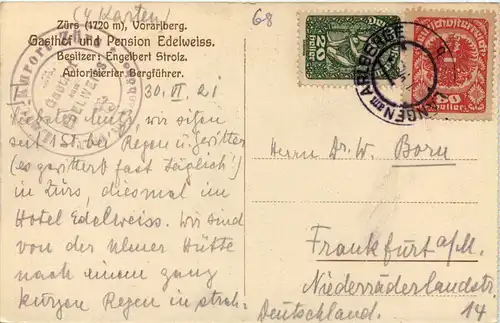 (4 Karten)
68
Zürs (1720 m), Vorarlberg.
Gasthof und Pension Edelweiss.
Besitzer: Engelbert Strolz.
Autorisierter Bergführer.
30. VI. 21
wir sitzen
seit St. bei Regen u. Gewitter
(es gewittert fast täglich!)
in Zürs, diesmal im
Hotel Edelweiss. Wir sind
von der Ulmer Hütte
nach einem ganz
kurzen Regen in strah-
20
80
Heller
LANGEN am ARLBERGE
Herrn Dr. W. Born
Frankfurt a/M.
Niederräderlandstr
14
Deutschland.